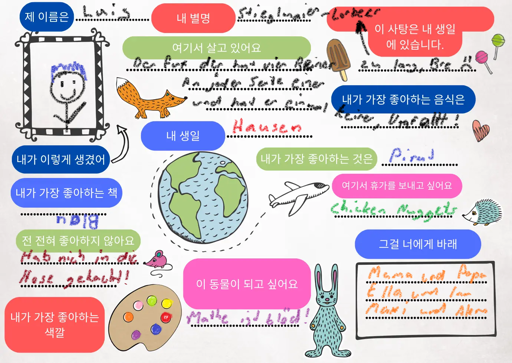 제 이름은
Luis
내 별명
Stieglmaier-
이 사탕은 내 생일
에 있습니다.
여기서 살고 있어요
Der Fux der hat vier Beiner
An jeder Seite einer
und hat er einmal
zu lang, Bre
내가 가장 좋아하는 음식은
keiner, Umfallt!
내 생일
Hausen
내가 이렇게 생겼어
내가 가장 좋아하는 것은
Pirat
내가 가장 좋아하는 책
Blau
여기서 휴가를 보내고 싶어요
Chicken Nuggets
전 전혀 좋아하지 않아요
Hab mich in die
Hose gekackt!
그걸 너에게 바래
Mama und Papa
Ella und Ian
Maxi und
이 동물이 되고 싶어요
Mathe ist blöd!
내가 가장 좋아하는
색깔